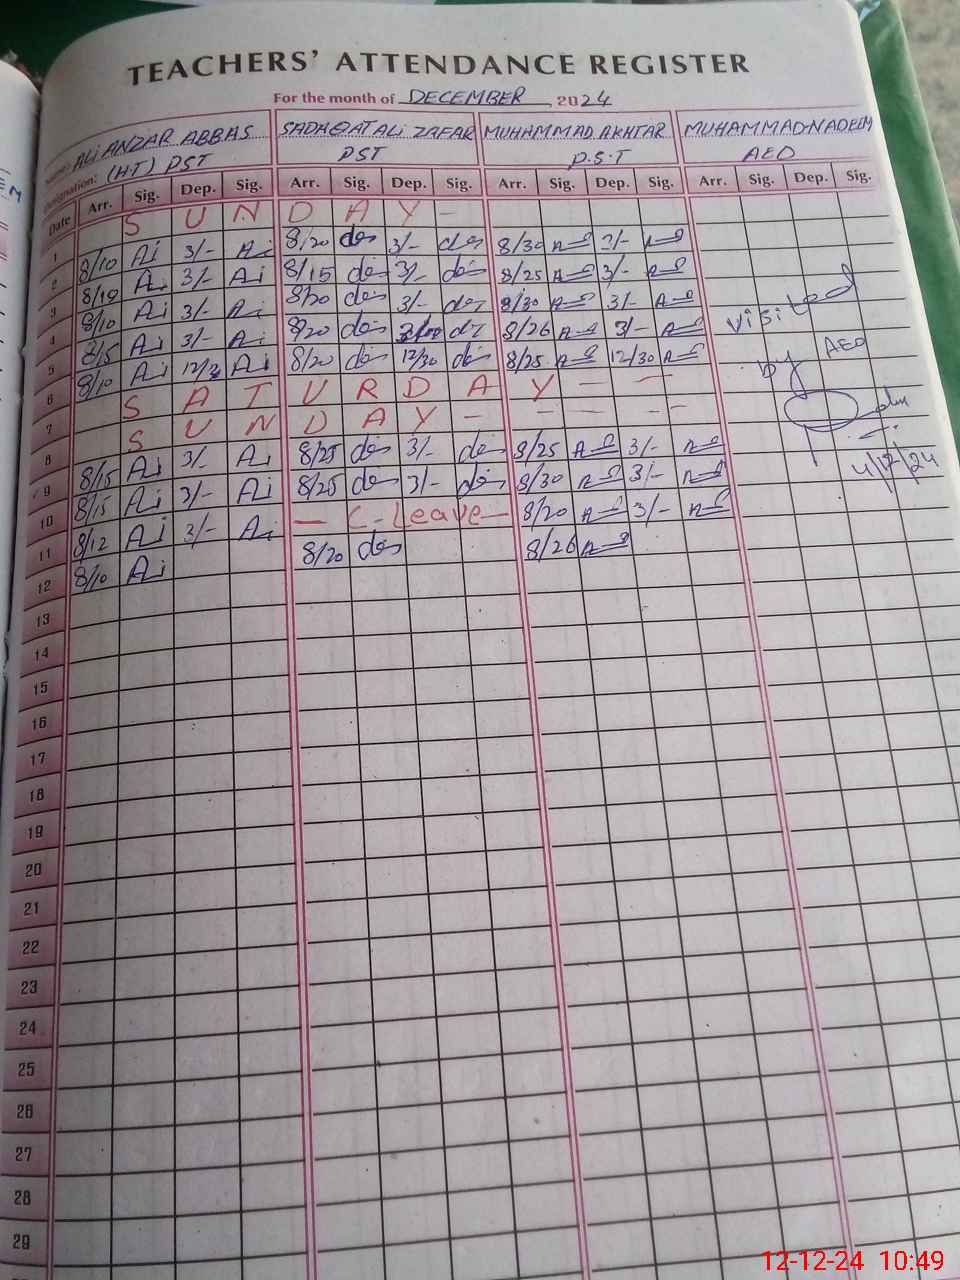 TEACHERS' ATTENDANCE REGISTER
For the month of DECEMBER, 2024
Name: ALI ANZAR ABBAS SADAQAT ALI ZAFAR MUHAMMAD AKHTAR MUHAMMAD NADEEM
Designation: (H.T) PST PST P.S.T AEO
Date Arr. Sig. Dep. Sig. Arr. Sig. Dep. Sig. Arr. Sig. Dep. Sig. Arr. Sig. Dep. Sig.
1 S U N D A Y -
2 8/10 Ai 3/- Ai 8/20 3/- 8/30 3/-
3 8/10 Ai 3/- Ai 8/15 3/- 8/25 3/-
4 8/10 Ai 3/- Ai 8/20 3/- 8/30 3/-
5 8/15 Ai 3/- Ai 8/20 8/26 3/-
6 8/10 Ai 12/30 Ai 8/20 12/30 8/25 12/30
7 S A T U R D A Y - - -
8 S U N D A Y - - - - -
9 8/15 Ai 3/- Ai 8/25 3/- 8/25 3/-
10 8/15 Ai 3/- Ai 8/25 3/- 8/30 3/-
11 8/12 Ai 3/- Ai - C-Leave - 8/20 3/-
12 8/10 Ai 8/20 8/26
visited
by AEO
4/12/24
13
14
15
16
17
18
19
20
21
22
23
24
25
26
27
28
29
12-12-24 10:49